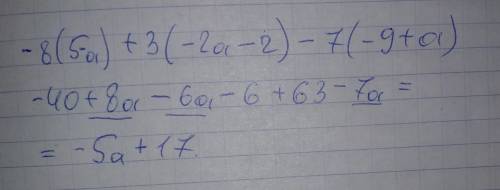 -8(5-a)+3(-2a-2)-7(-9+a)
-40+8a-6a-6+63-7a=
=-5a+17.